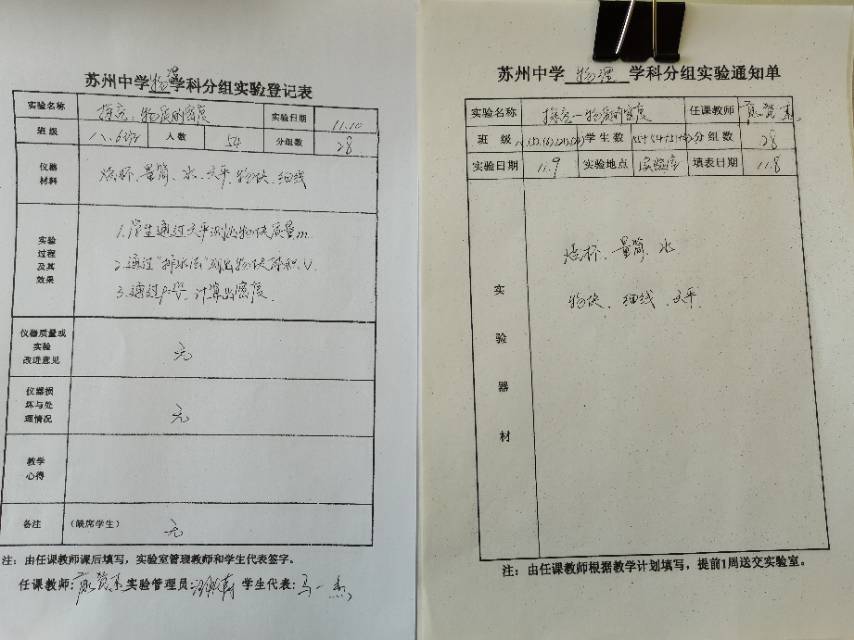 苏州中学物理学科分组实验登记表
实验名称 探究:物质的密度 实验日期 11.10
班级 八.6班 人数 54 分组数 28
仪器
材料
烧杯、量筒、水、天平、物块、细线
实验
过程
及其
效果
1.学生通过天平测出物块质量m.
2.通过“排水法”测出物块体积V.
3.通过ρ=m/V,计算出密度.
仪器质量或
实验
改进意见
无
仪器损
坏与处
理情况
无
教学
心得
备注 (缺席学生) 无
注:由任课教师课后填写,实验室管理教师和学生代表签字。
任课教师: 实验管理员: 学生代表:马一杰
苏州中学 物理 学科分组实验通知单
实验名称 探究—物质的密度 任课教师
班级 学生数 分组数 28
实验日期 11.9 实验地点 实验室 填表日期 11.8
实
验
器
材
烧杯、量筒、水
物块、细线、天平.
注:由任课教师根据教学计划填写,提前1周送交实验室。